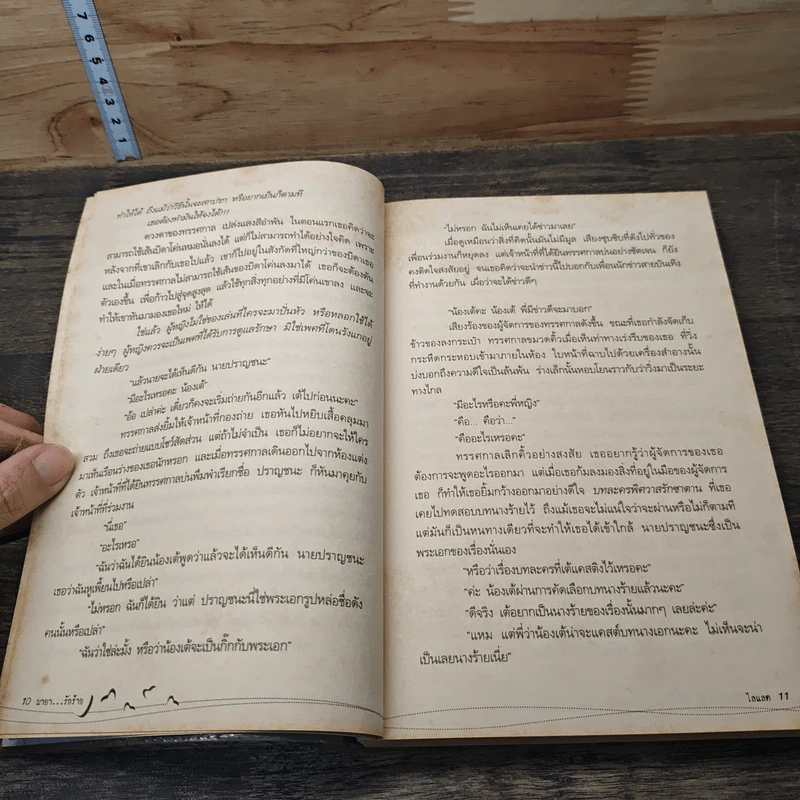 7 6 5 4 3 2 1
ทำให้ได้ ถึงแม้ว่าวิธีนั้นจะสกปรก หรือยากเย็นก็ตามที
เธอต้องทำมันให้จงได้!!!
ดวงตาของทรรศกาล เปล่งแสงสีอำพัน ในตอนแรกเธอคิดว่าจะ
สามารถใช้เส้นบิดาโค่นหมอนั่นลงได้ แต่ก็ไม่สามารถทำได้อย่างใจคิด เพราะ
หลังจากที่เขาเลิกกับเธอไปแล้ว เขาก็ไปอยู่ในสังกัดที่ใหญ่กว่าของบิดาเธอ
และในเมื่อทรรศกาลไม่สามารถใช้เส้นของบิดาโค่นลงมาได้ เธอก็จะต้องดัน
ตัวเองขึ้น เพื่อก้าวไปสู่จุดสูงสุด แล้วใช้ทุกสิ่งทุกอย่างที่มีโค่นเขาลง และจะ
ทำให้เขาหันมามองเธอใหม่ ให้ได้
ใช่แล้ว ผู้หญิงไม่ใช่ของเล่นที่ใครจะมาปั่นหัว หรือหลอกใช้ได้
ง่ายๆ ผู้หญิงควรจะเป็นเพศที่ได้รับการดูแลรักษา มิใช่เพศที่โดนรังแกอยู่
ฝ่ายเดียว
“แล้วนายจะได้เห็นดีกัน นายปราญชนะ”
“มีอะไรเหรอคะ น้องเต้”
“อ้อ เปล่าค่ะ เดี๋ยวก็คงจะเริ่มถ่ายกันอีกแล้ว เต้ไปก่อนนะคะ”
ทรรศกาลส่งยิ้มให้เจ้าหน้าที่กองถ่าย เธอหันไปหยิบเสื้อคลุมมา
สวม ถึงเธอจะถ่ายแบบโชว์สัดส่วน แต่ถ้าไม่จำเป็น เธอก็ไม่อยากจะให้ใคร
มาเห็นเรือนร่างของเธอนักหรอก และเมื่อทรรศกาลเดินออกไปจากห้องแต่ง
ตัว เจ้าหน้าที่ที่ได้ยินทรรศกาลบ่นพึมพำเรียกชื่อ ปราญชนะ ก็หันมาคุยกับ
เจ้าหน้าที่ที่ร่วมงาน
“นี่เธอ”
“อะไรเหรอ”
“ฉันว่าฉันได้ยินน้องเต้พูดว่าแล้วจะได้เห็นดีกัน นายปราญชนะ
เธอว่าฉันหูเพี้ยนไปหรือเปล่า”
“ไม่หรอก ฉันก็ได้ยิน ว่าแต่ ปราญชนะนี่ใช่พระเอกรูปหล่อชื่อดัง
คนนั้นหรือเปล่า”
“ฉันว่าใช่ล่ะมั้ง หรือว่าน้องเต้จะเป็นกิ๊กกับพระเอก”
10 มายา...รักร้าย
“ไม่หรอก ฉันไม่เห็นเคยได้ข่าวมาเลย”
เมื่อดูเหมือนว่าสิ่งที่คิดนั้นมันไม่มีมูล เสียงซุบซิบที่ดังไปทั่วของ
เพื่อนร่วมงานก็หยุดลง แต่เจ้าหน้าที่ที่ได้ยินทรรศกาลบ่นอย่างชัดเจน ก็ยัง
คงติดใจสงสัยอยู่ จนเธอคิดว่าจะนำข่าวนี้ไปบอกกับเพื่อนนักข่าวสายบันเทิง
ที่ทำงานด้วยกัน เผื่อว่าจะได้ข่าวดีๆ
“น้องเต้คะ น้องเต้ พี่มีข่าวดีจะมาบอก”
เสียงร้องของผู้จัดการของทรรศกาลดังขึ้น ขณะที่เธอกำลังจัดเก็บ
ข้าวของลงกระเป๋า ทรรศกาลขมวดคิ้วเมื่อเห็นท่าทางเร่งรีบของเธอ ที่วิ่ง
กระหืดกระหอบเข้ามาภายในห้อง ใบหน้าที่ฉาบไปด้วยเครื่องสำอางนั้น
บ่งบอกถึงความดีใจเป็นล้นพ้น ร่างเล็กนั้นหอบโยนราวกับว่าวิ่งมาเป็นระยะ
ทางไกล
“มีอะไรหรือคะพี่หญิง”
“คือ... คือว่า...”
“คืออะไรเหรอคะ”
ทรรศกาลเลิกคิ้วอย่างสงสัย เธออยากรู้ว่าผู้จัดการของเธอ
ต้องการจะพูดอะไรออกมา แต่เมื่อเธอก้มลงมองสิ่งที่อยู่ในมือของผู้จัดการ
เธอ ก็ทำให้เธอยิ้มกว้างออกมาอย่างดีใจ บทละครพิศวาสรักซาตาน ที่เธอ
เคยไปทดสอบบทนางร้ายไว้ ถึงแม้เธอจะไม่แน่ใจว่าจะผ่านหรือไม่ก็ตามที
แต่มันก็เป็นหนทางเดียวที่จะทำให้เธอได้เข้าใกล้ นายปราญชนะซึ่งเป็น
พระเอกของเรื่องนั่นเอง
“หรือว่าเรื่องบทละครที่เต้แคสติงไว้เหรอคะ”
“ค่ะ น้องเต้ผ่านการคัดเลือกบทนางร้ายแล้วนะคะ”
“ดีจริง เต้อยากเป็นนางร้ายของเรื่องนั้นมากๆ เลยล่ะค่ะ”
“แหม แต่พี่ว่าน้องเต้น่าจะแคสต์บทนางเอกนะคะ ไม่เห็นจะน่า
เป็นเลยนางร้ายเนี่ย”
ไลแลค 11